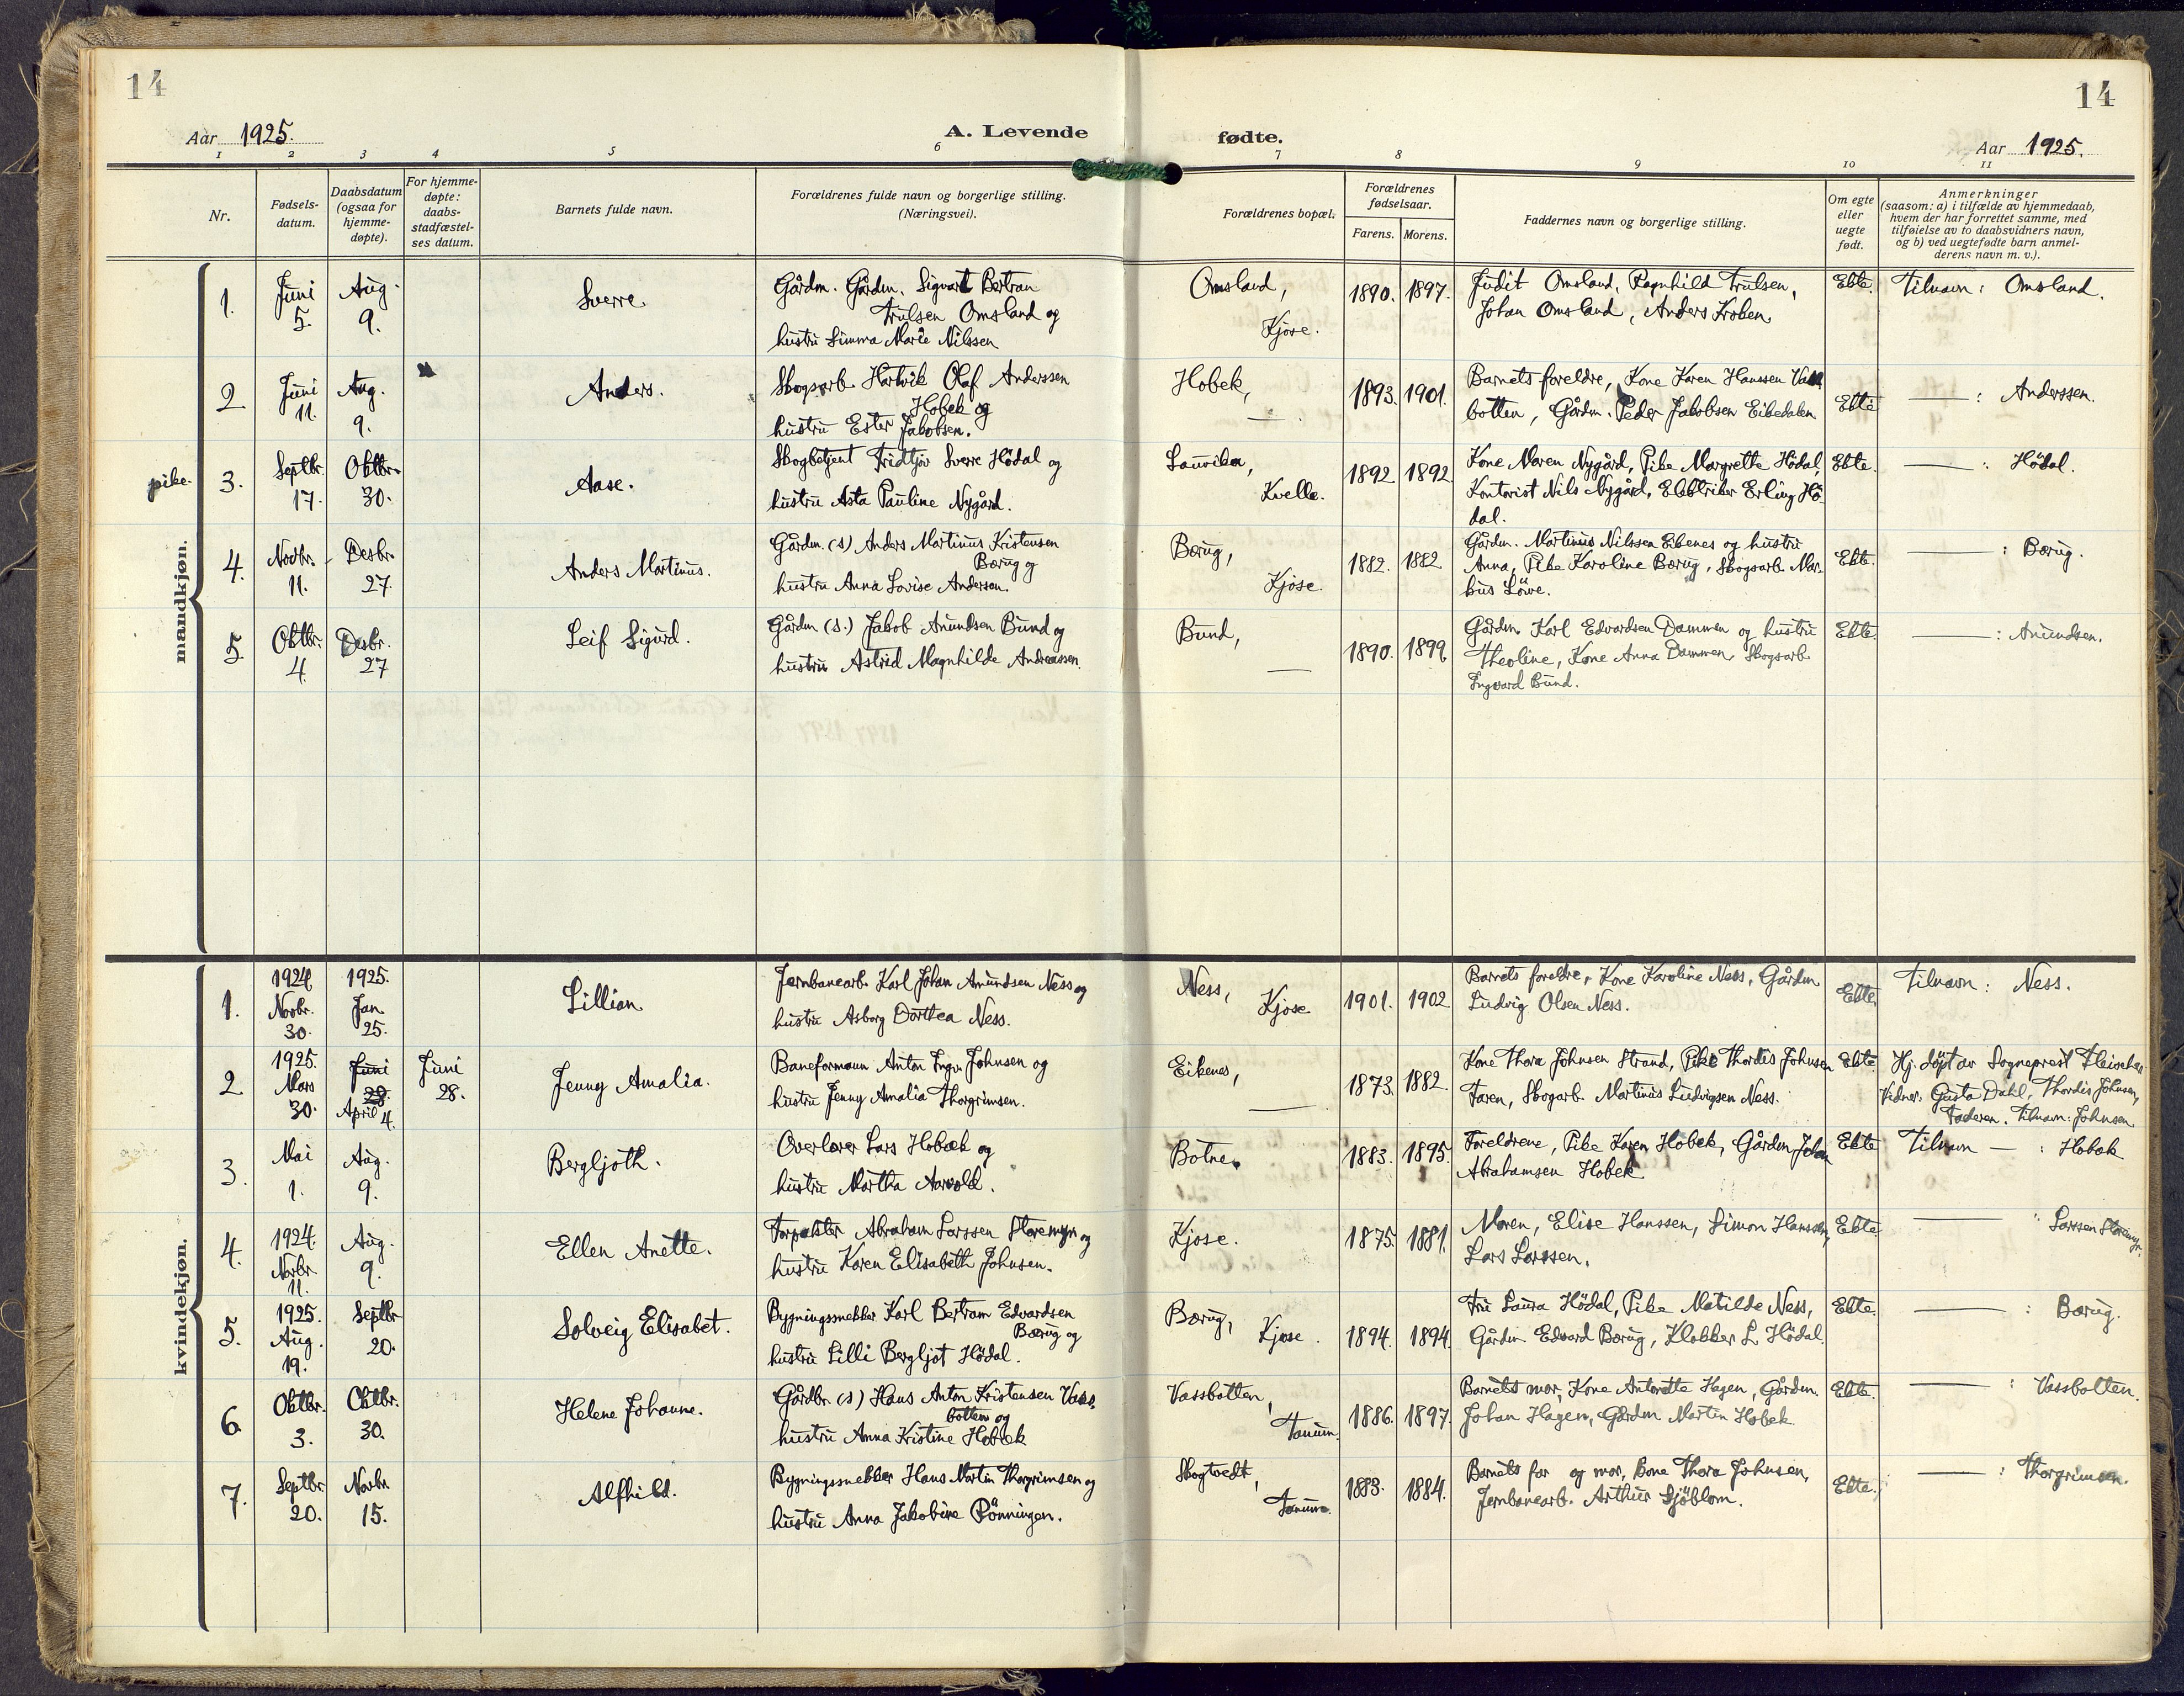 14
14
Aar 1925.
A. Levende
fødte.
Aar 1925.
1 2 3 4 5 6 7 8 9 10 11
Nr.
Fødsels-
datum.
Daabsdatum
(ogsaa for
hjemme-
døpte).
For hjemme-
døpte:
daabs-
stadfæstel-
ses datum.
Barnets fulde navn.
Forældrenes fulde navn og borgerlige stilling.
(Næringsvei).
Forældrenes bopæl.
Forældrenes
fødselsaar.
Farens. Morens.
Faddernes navn og borgerlige stilling.
Om egte
eller
uegte
født.
Anmerkninger
(saasom: a) i tilfælde av hjemmedaab,
hvem der har forrettet samme, med
tilføielse av to daabsvidners navn,
og b) ved uegtefødte barn anmel-
derens navn m. v.).
mandkjøn.
1.
Juni
5.
Aug.
9.
Sverre.
Gårdm. Gårdm. Sigvart Bertran
Trulsen Omsland og
hustru Simma Marie Nilssen
Omsland,
Kjose.
1890. 1897.
Judit Omsland, Ragnhild Trulsen,
Johan Omsland, Anders Kroken
Ekte.
Tilnavn: Omsland.
2
Juni
11.
Aug.
9.
Anders.
Skogsarb. Hartvik Olaf Anderssen
Hobek og
hustru Ester Jakobsen.
Hobek,
— .
1893. 1901.
Barnets foreldre, Kone Karen Hanssen Vass
botten, Gårdm. Peder Jakobsen Eikedalen
Ekte
— : Anderssen.
pike.
3.
Septbr.
17.
Oktbr.
30.
Aase.
Skogbetjent Fridtjov Sverre Hödal og
hustru Asta Pauline Nygård.
Lauvika,
Kvelle.
1892 1892
Kone Maren Nygård, Pike Margrette Hödal,
Kontorist Nils Nygård, Elektriker Erling Hö-
dal.
Ekte.
— : Hödal.
4.
Novbr.
11.
Desbr.
27.
Anders Martinus.
Gårdm. (s) Anders Martinus Kristensen
Bærug og
hustru Anna Lovise Andersen.
Bærug,
Kjose.
1882. 1882
Gårdm. Martinus Nilssen Eikenes og hustru
Anna, Pike Karoline Bærug, Skogsarb. Mar-
kus Löve.
Ekte.
— : Bærug.
5.
Oktbr.
4.
Desbr.
27
Leif Sigurd.
Gårdm (s.) Jakob Amundsen Bund og
hustru Astrid Magnhilde Andreassen.
Bund,
—
1890. 1899
Gårdm. Karl Edvardsen Dammen og hustru
Theoline, Kone Anna Dammen, Skogsarb.
Ingvard Bund.
Ekte.
— : Amundsen.
kvindekjøn.
1.
1924
Novbr.
30.
1925.
Jan.
25.
Lillian
Jernbanearb. Karl Johan Amundsen Ness og
hustru Asborg Dorthea Ness.
Ness,
Kjose
1901. 1902
Barnets foreldre, Kone Karoline Ness, Gårdm.
Ludvig Olsen Ness.
Ekte.
Tilnavn: Ness.
2.
1925.
Mars
30.
Juni
28.
April 4.
Juni
28.
Jenny Amalia.
Baneformann Anton Ingv. Johnsen og
hustru Jenny Amalia Thorgrimsen.
Eikenes,
—
1873. 1882
Kone Thora Johnsen Strand, Pike Thordis Johnsen
Faren, Skogarb. Martinus Ludvigsen Ness.
Ekte
Hj. døpt av Sogneprest Fleischer
Vidner: Gusta Dahl, Thordis Johnsen,
Faderen. Tilnavn: Johnsen
3.
Mai
1.
Aug.
9.
Bergljoth.
Overlærer Lars Hobæk og
hustru Martha Aarvold.
Botne,
1883. 1895.
Foreldrene, Pike Karen Hobek, Gårdm. Johan
Abrahamsen Hobek
Ekte
Tilnavn — : Hobæk
4.
1924.
Novbr.
11.
Aug.
9.
Ellen Anette.
Forpakter Abraham Larssen Storemyr og
hustru Karen Elisabeth Johnsen.
Kjose.
1875. 1881.
Moren, Elise Hanssen, Simon Hanssen,
Lars Larssen.
Ekte
— : Larssen Storemyr.
5.
1925.
Aug.
19.
Septbr
20.
Solveig Elisabet.
Bygningssnekker Karl Bertram Edvardsen
Bærug og
hustru Lilli Bergljot Hödal.
Bærug,
Kjose.
1894. 1894.
Fru Laura Hödal, Pike Matilde Ness,
Gårdm. Edvard Bærug, Klokker L. Hödal.
Ekte.
— : Bærug.
6.
Oktbr.
3.
Oktbr.
30.
Helene Johanne.
Gårdbr. (s) Hans Anton Kristensen Vass-
botten og
hustru Anna Kristine Hobæk
Vassbotten,
Tanum.
1886. 1897.
Barnets mor, Kone Antonette Hagen, Gårdm.
Johan Hagen, Gårdm Martin Hobek
Ekte.
— : Vassbotten.
7.
Septbr
20.
Novbr.
15.
Alfhild.
Bygningssnekker Hans Martin Thorgrimsen og
hustru Anna Jakobine Rönningen.
Skogtvedt,
Tanum.
1883. 1884.
Barnets far og mor, Kone Thora Johnsen,
Jernbanearb. Arthur Sjöblom.
Ekte.
— : Thorgrimsen.